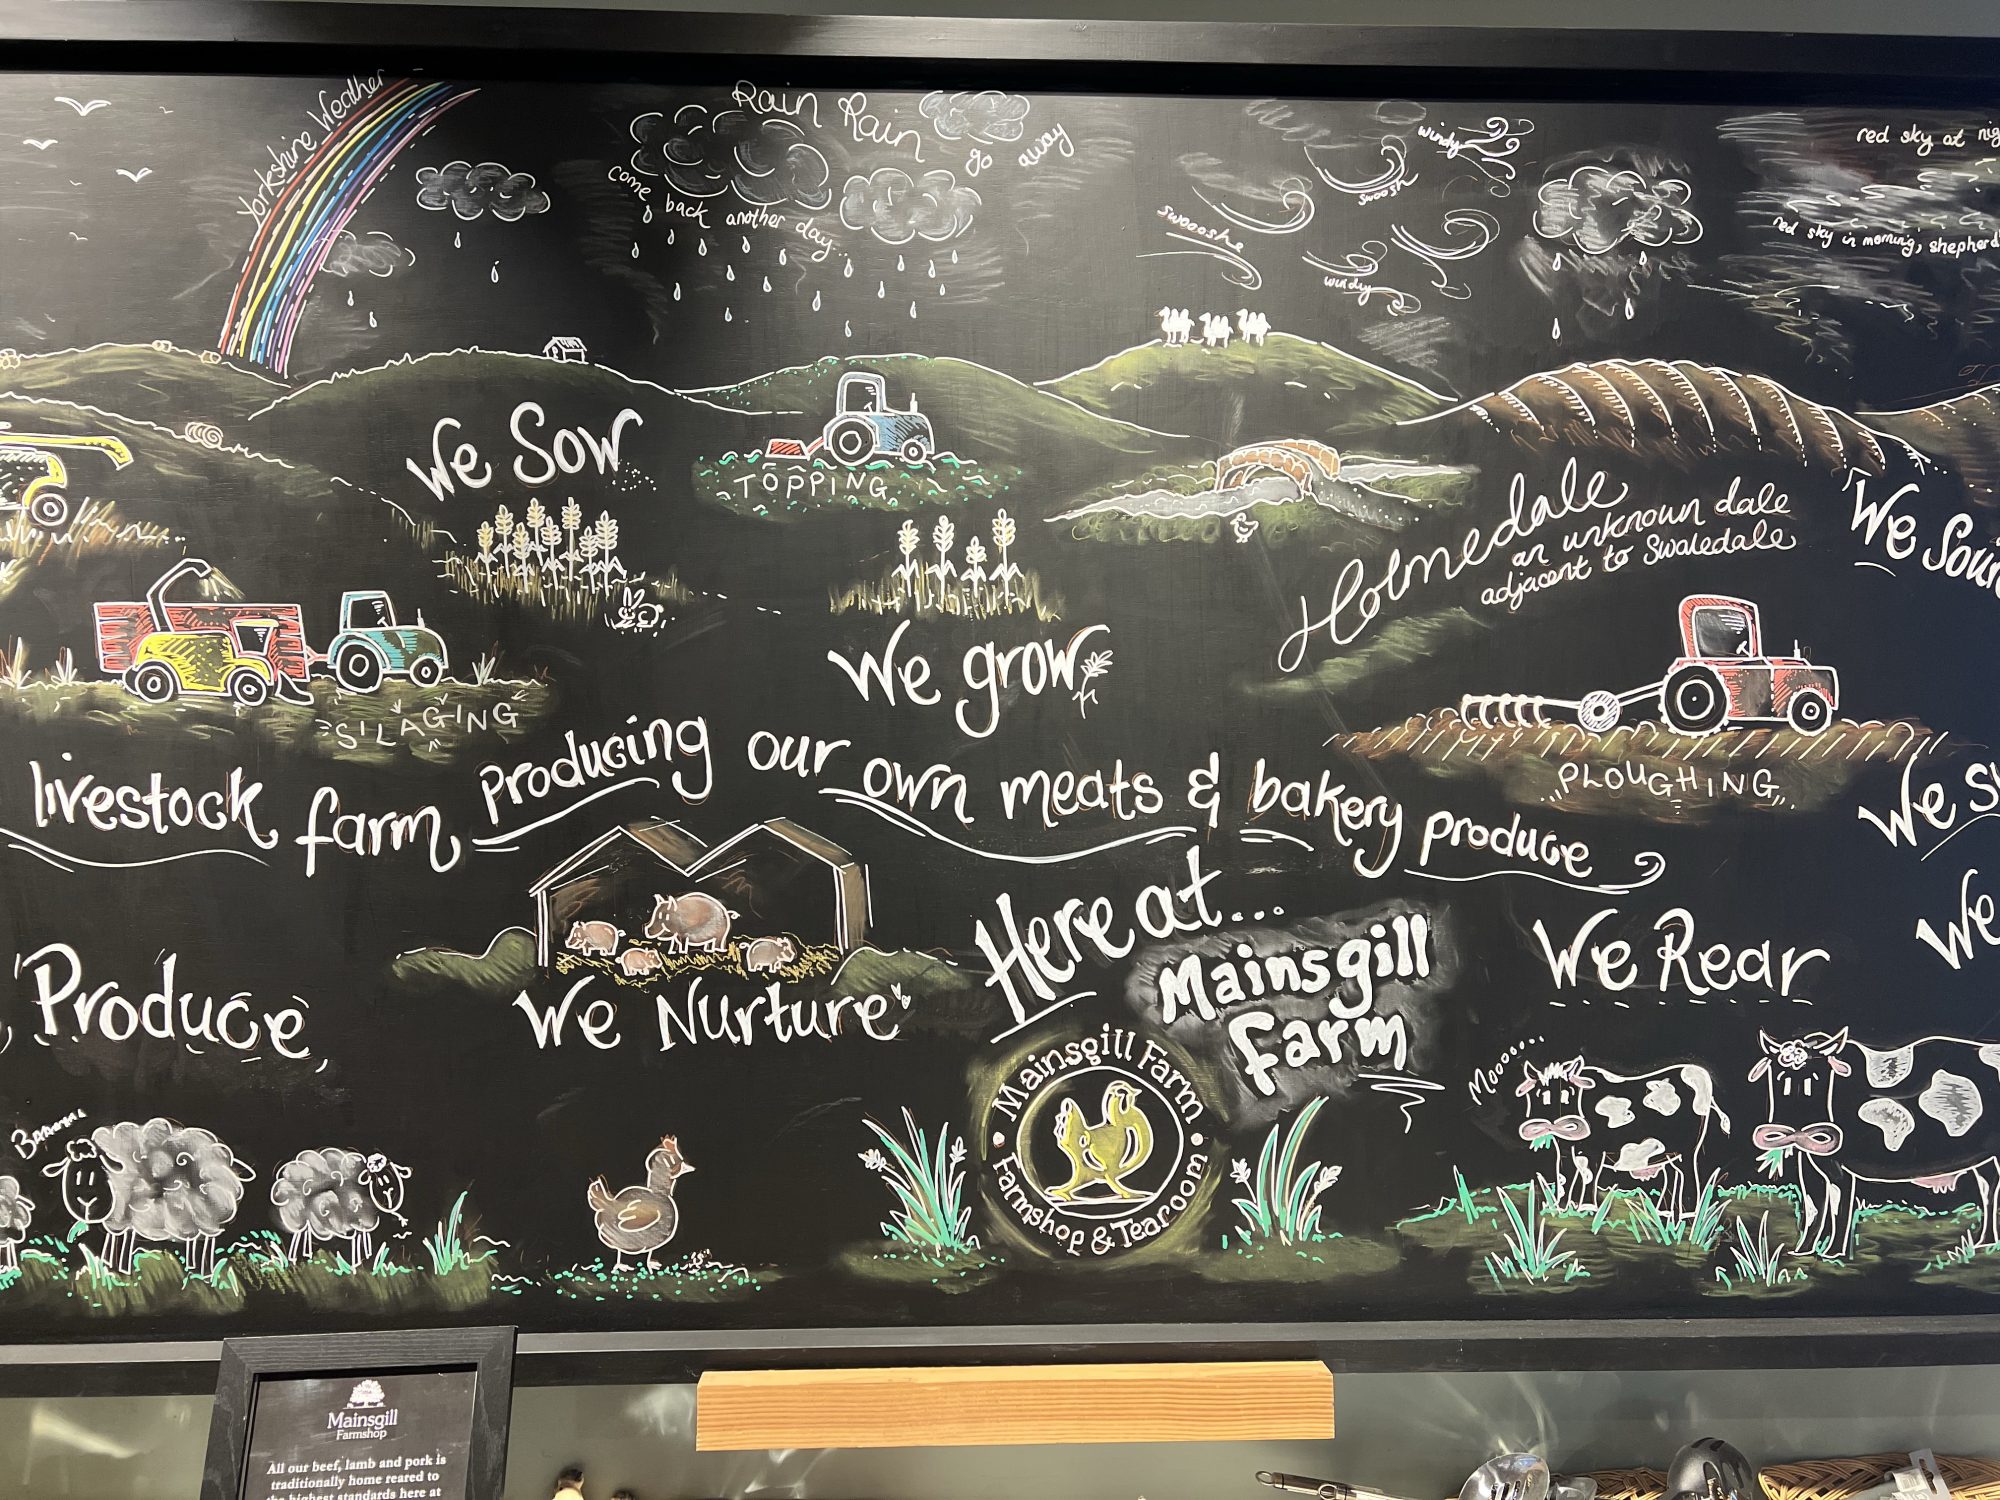 Yorkshire Weather
Rain Rain
go away
come back another day...
windy
swoosh
swooshe
windy
red sky at
red sky in morning, shepherd
We Sow
TOPPING
Holmedale
an unknown dale
adjacent to Swaledale
We
We grow
SILAGING
PLOUGHING
livestock farm producing our own meats & bakery produce
We
Here at...
Mainsgill
Farm
We Rear
We
Produce,
We Nurture
Mooo.....
Mainsgill Farm
Farmshop & Tearoom
Mainsgill
Farmshop
All our beef, lamb and pork is
traditionally home reared to
the highest standards here at